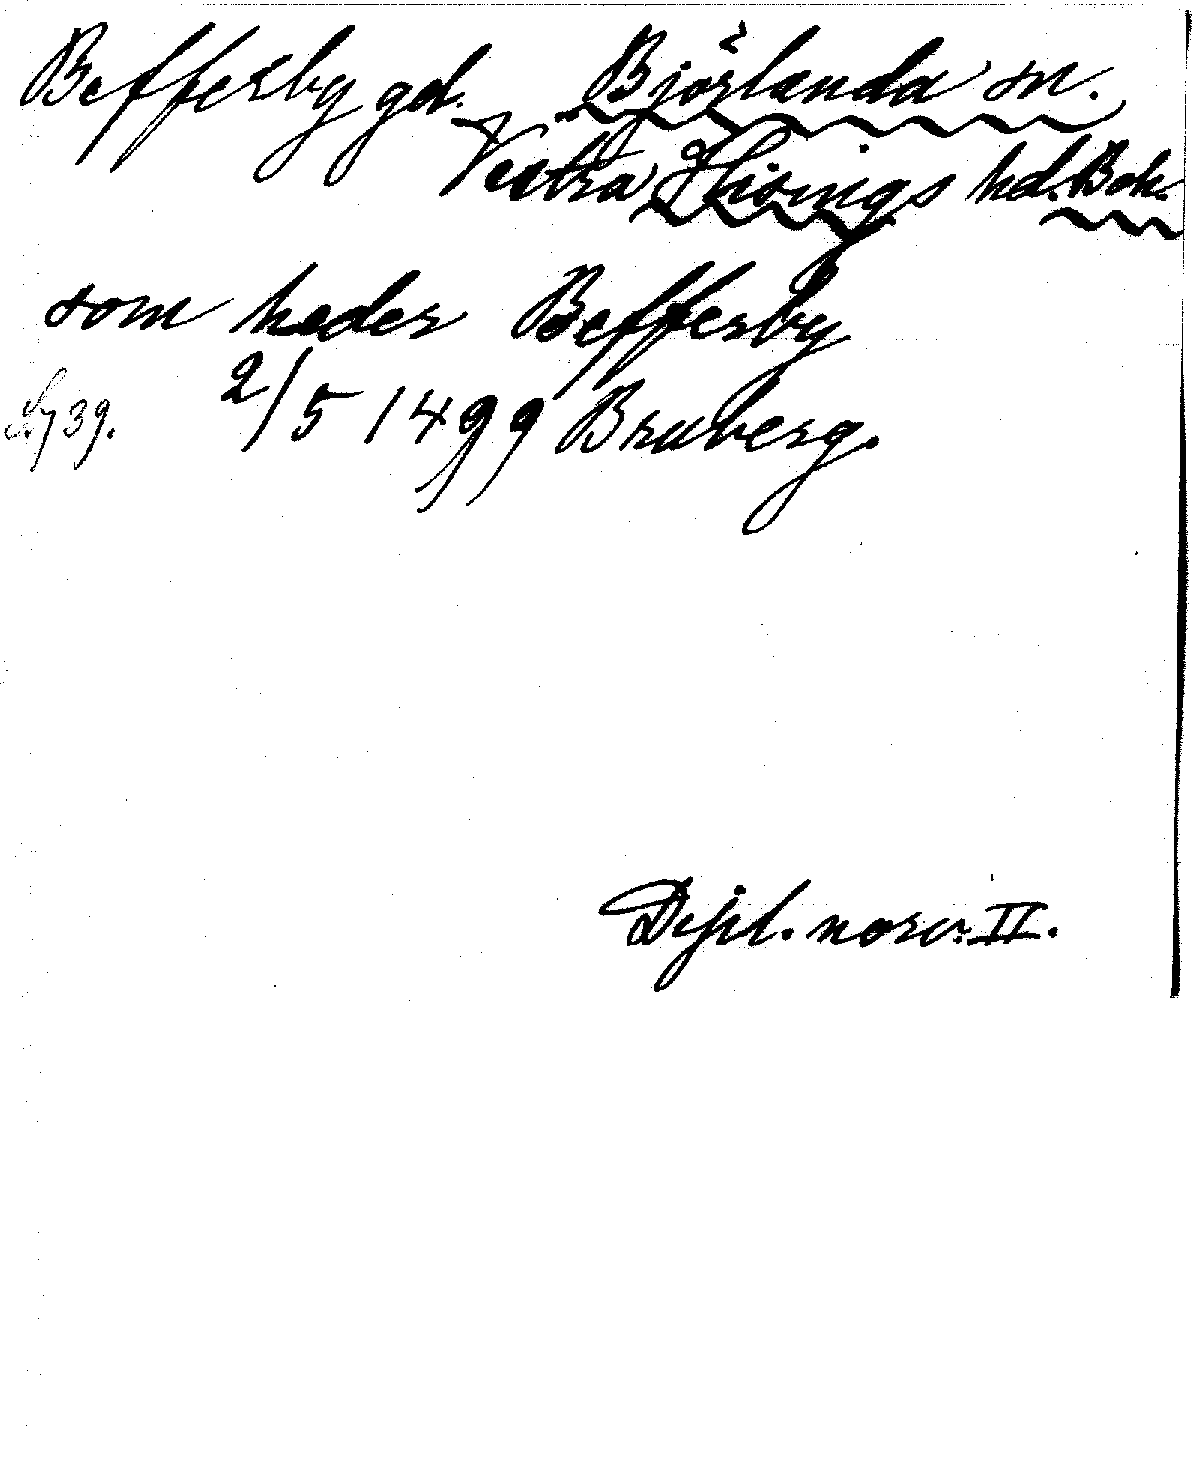 Befferby gd. Björlanda sn.
Vestra Hisings hd. Boh.
som heder Befferby
S. 739. 2/5 1499 Bruberg.
Dipl. norv. II.